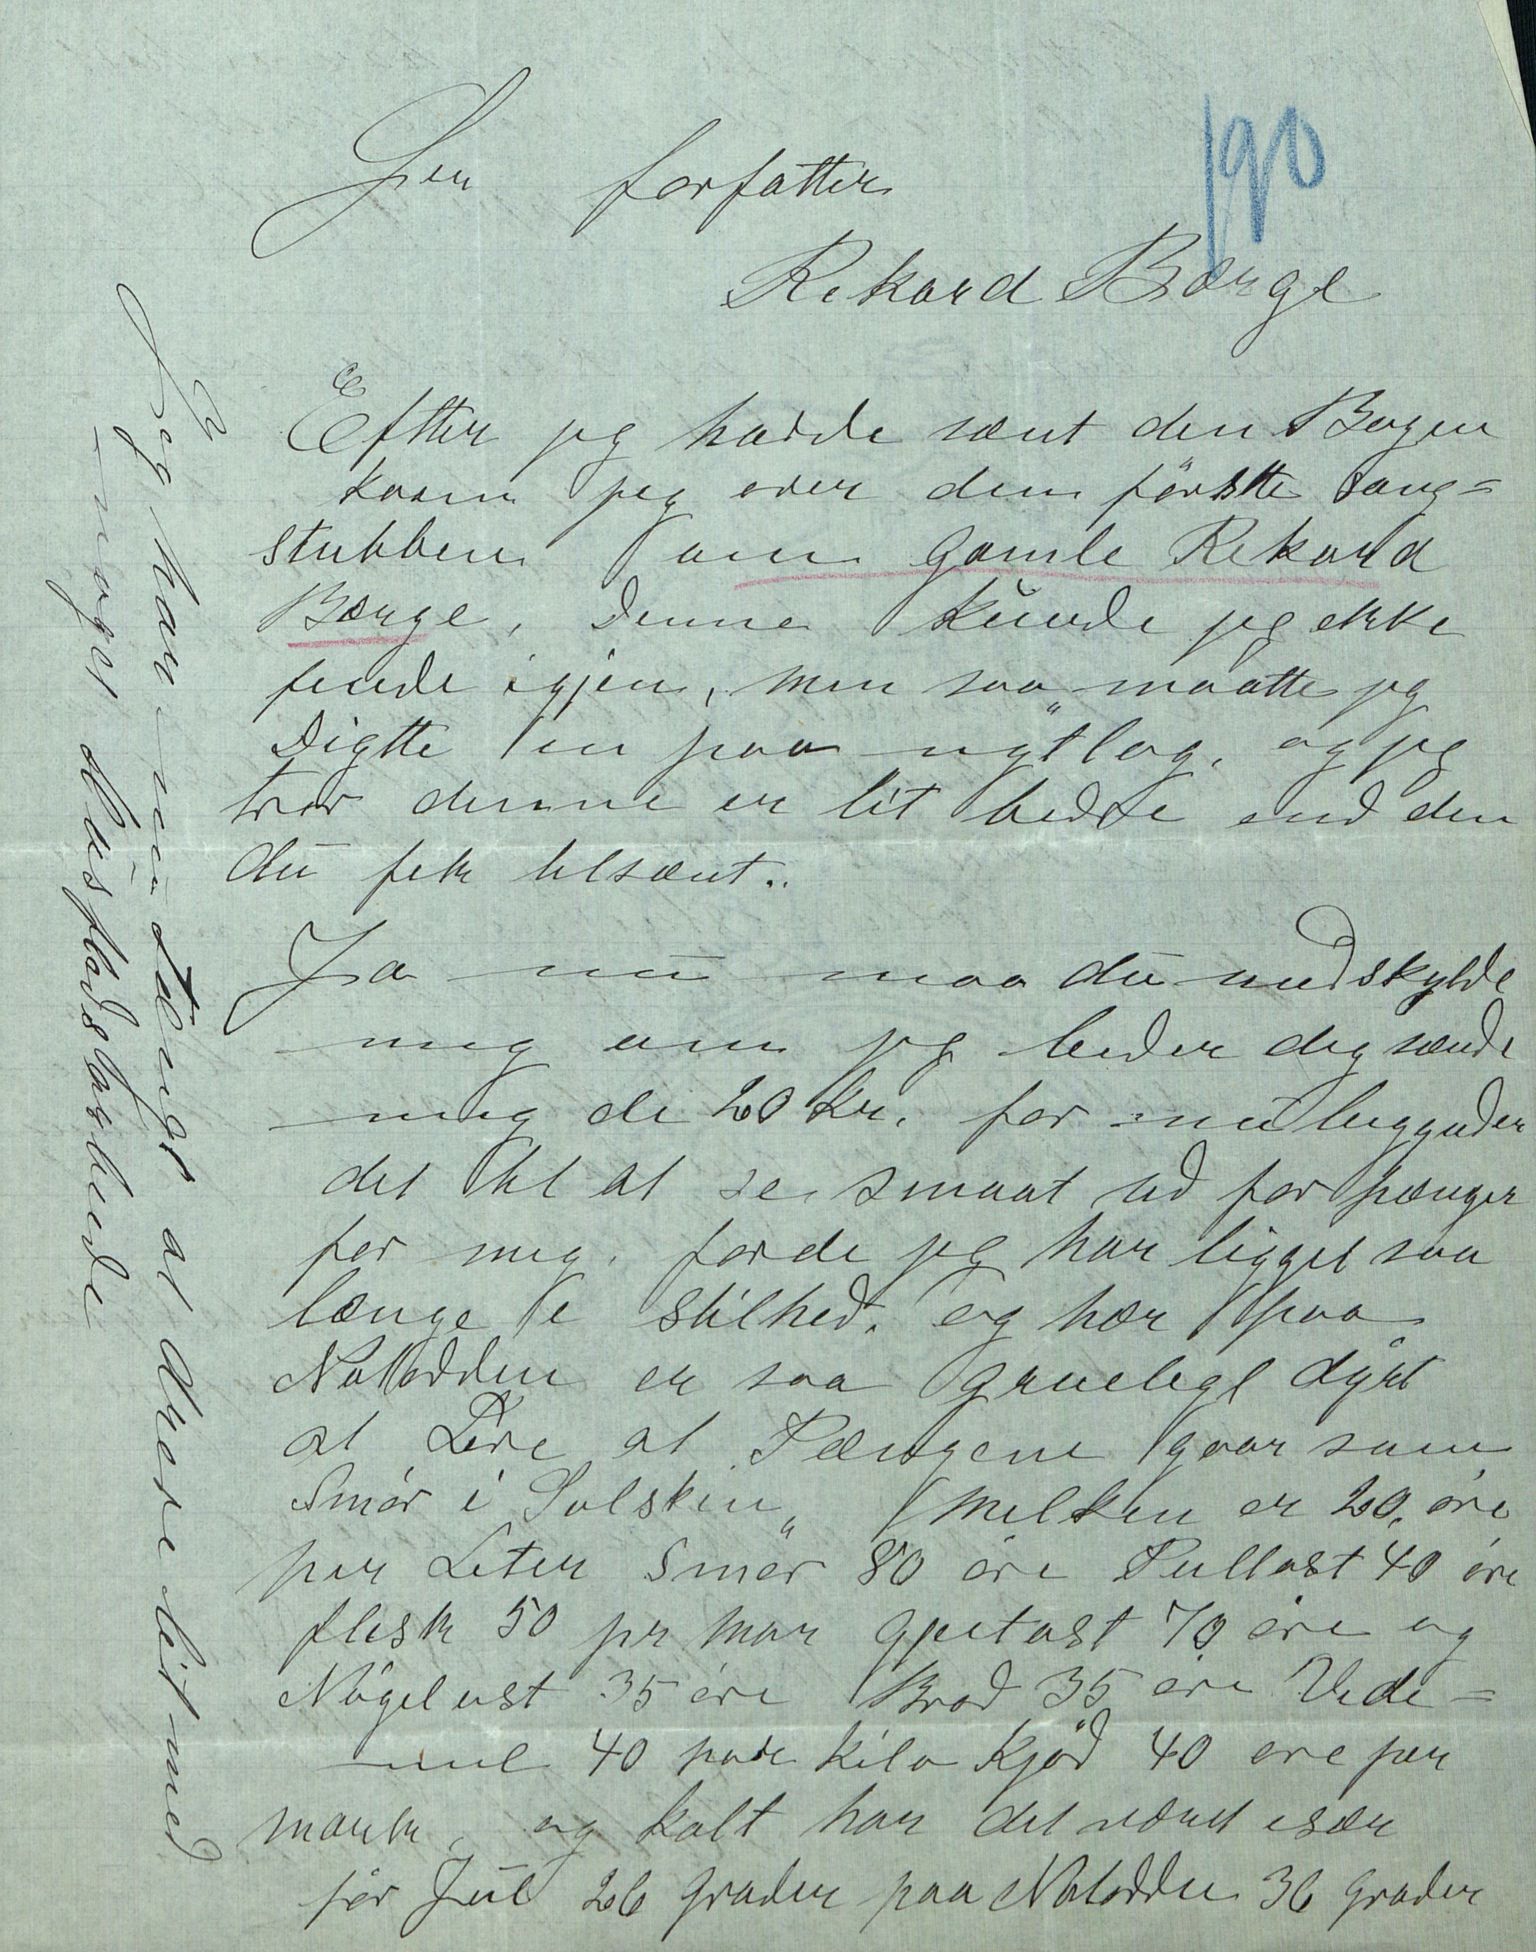 190
Herr forfatter
Rikard Bærge
Efter jeg hadde sænt den Bogen
kaam jeg over den förstte sang=
stubben om gamle Rikard
Bærge, denne kunde jeg ekke
finde igjen, men saa maatte jeg
digtte en paa nytlag, og jeg
tror denne er lit bedre end den
du fek telsænt..
Ja nu maa du undskylde
meg om jeg beder deg sænde
meg de 20 Kr. for nu begynder
det tel at se smaat ud for pænger
for meg. forde jeg har ligget saa
længe e stilhed. og hær paa
Notodden er saa gruelegt dyrt
at Leve at Pængene gaar som
Smör i Solskin„ Melken er 20. öre
per Leter Smör 80 öre Pultost 40 öre
flesk 50 pr mar gjetost 70 öre og
Nögelost 35 öre Bröd 35 öre Vede=
mel 40 pær kilo kjöd 40 öre per
mark, og kalt har det vænt esær
för Jul 26 grader paa Notodden 36 grader
Jeg har nu tænkt at drive lit med
noget Husflidsarbeide